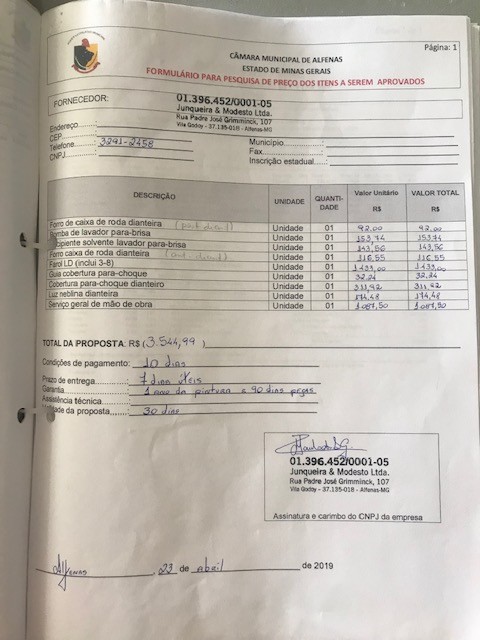 Página: 1
CÂMARA MUNICIPAL DE ALFENAS
ESTADO DE MINAS GERAIS
FORMULÁRIO PARA PESQUISA DE PREÇO DOS ITENS A SEREM APROVADOS
FORNECEDOR:
01.396.452/0001-05
Junqueira & Modesto Ltda.
Rua Padre José Grimminck, 107
Vila Godoy - 37.135-018 - Alfenas-MG
Endereço
CEP
Município
Telefone 3291-2458
Fax
CNPJ
Inscrição estadual
DESCRIÇÃO UNIDADE QUANTIDADE Valor Unitário R$ VALOR TOTAL R$
Forro de caixa de roda dianteira Unidade 01 92,00 92,00
Bomba de lavador para-brisa Unidade 01 153,74 153,74
cipiente solvente lavador para-brisa Unidade 01 143,56 143,56
Forro caixa de roda dianteira Unidade 01 116,55 116,55
Farol LD (inclui 3-8) Unidade 01 1.433,00 1.433,00
Guia cobertura para-choque Unidade 01 32,24 32,24
Cobertura para-choque dianteiro Unidade 01 311,92 311,92
Luz neblina dianteira Unidade 01 174,48 174,48
Serviço geral de mão de obra Unidade 01 1.087,50 1.087,50
TOTAL DA PROPOSTA: R$ (3.544,99)
Condições de pagamento: 10 dias
Prazo de entrega: 7 dias úteis
Garantia 1 ano da pintura e 90 dias peças
Assistência técnica
da proposta 30 dias
01.396.452/0001-05
Junqueira & Modesto Ltda.
Rua Padre José Grimminck, 107
Vila Godoy - 37.135-018 - Alfenas-MG
Assinatura e carimbo do CNPJ da empresa
Alfenas, 23 de abril de 2019